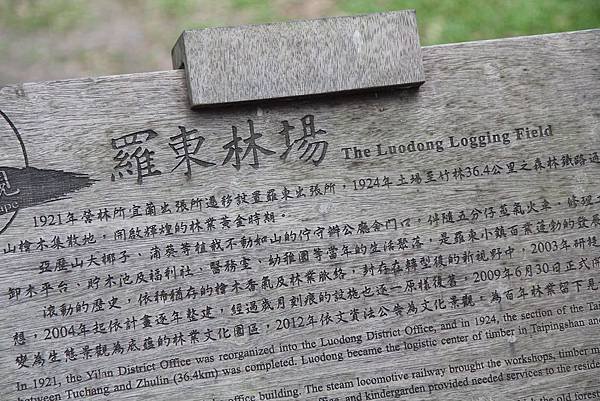 羅東林場 The Luodong Logging Field
見
1921年營林所宜蘭出張所遷移放置羅東出張所，1924年土場至竹林36.4公里之森林鐵路通
山檜木集散地，開啟輝煌的林業黃金時期。
亞歷山大椰子、蒲葵等植栽不動如山的佇守辦公廳舍門口，伴隨五分仔蒸氣火車，修理工
卸木平台、貯木池及福利社、醫務室、幼稚園等當年的生活聚落，是羅東小鎮百業蓬勃的發展
滾動的歷史，依稀猶存的檜木香氣及林業脈絡，封存在轉型後的新視野中，2003年研提
想，2004年起依計畫逐年整建，經過歲月刻痕的設施也逐一原樣復著，2009年6月30日正式
變為生態景觀為底蘊的林業文化園區，2012年依文資法公告為文化景觀，為百年林業留下見
In 1921, the Yilan District Office was reorganized into the Luodong District Office, and in 1924, the section of the Tai
between Tuchang and Zhulin (36.4km) was completed. Luodong became the logistic center of timber in Taipingshan and
office building. The steam locomotive railway brought the workshops, timber m
office, and kindergarden provided needed services to the reside
the old forest